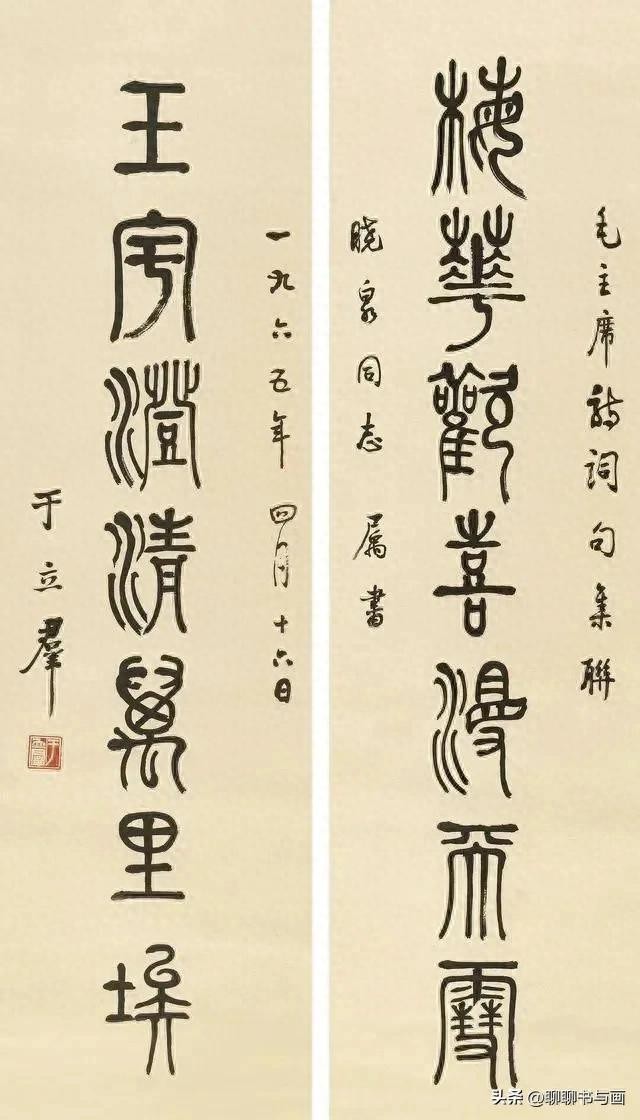 毛主席詩詞句集聯
梅華歡喜漫天雪
晓泉同志 属書
一九六五年四月十六日
玉宇澄清萬里埃
于立羣
头条 @聊聊书与画